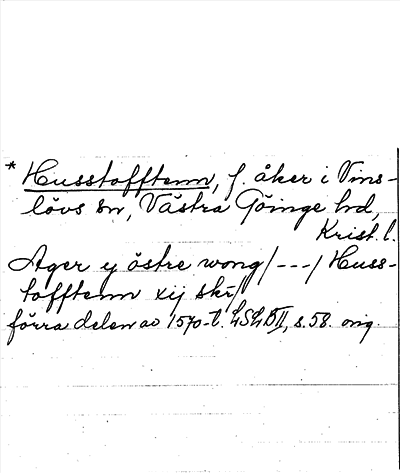 * Husstofftenn, f. åker i Vins-
lövs sn, Västra Göinge hd,
Krist. l.
Ager y östre wong /---/ Huss-
tofftenn xij skr/
förra delen av 1570-t. LSLB II, s. 58. orig.